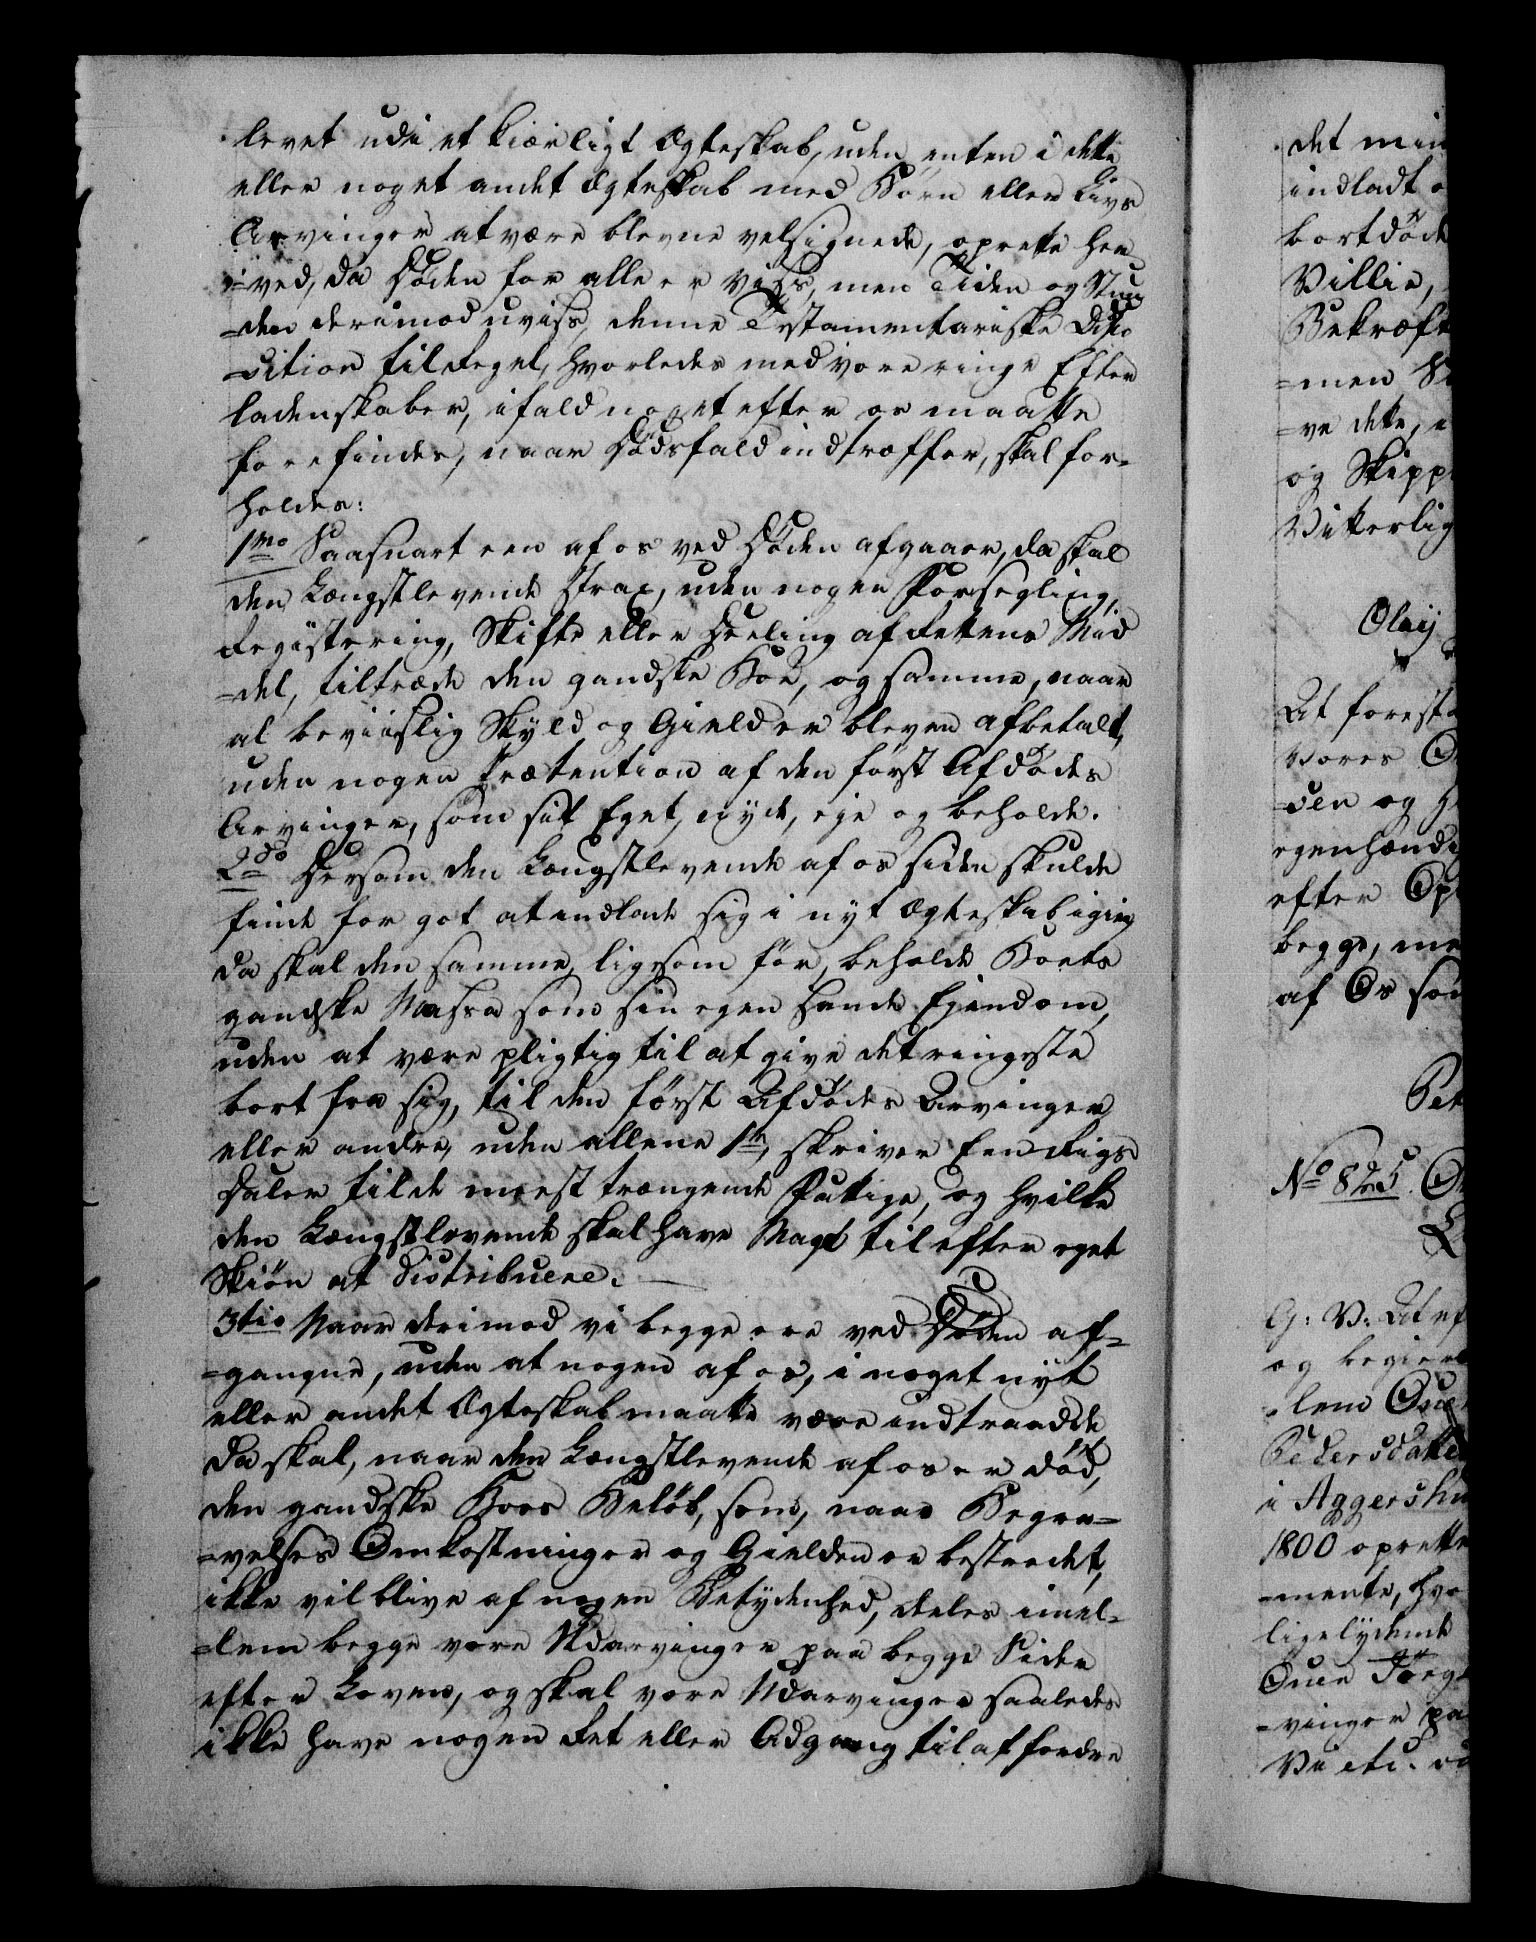 levet udi et kiærligt Ægteskab, uden enten i dette
eller noget andet Ægteskab med Børn eller Livs
Arvinger at være blevne velsignede, oprette her
=ved, da Døden for alle er viss, men Tiden og Stun
=den derimod uviss, denne Testamentariske Dispo
=sition tilRegel, hvorledes med vore ringe Efter
ladenskaber, ifald noget efter os maatte
forefindes, naar Dødsfald indtræffer, skal for=
holdes:
1mo Saasnart een af os ved Døden afgaaer, da skal
den Længstlevende strax, uden nogen Forsegling,
Registering, Skifte eller Deeling af Rettens Mid
=del, tiltræde den gandske Boe, og samme, naar
al beviislig Skyld og Gield er bleven afbetalt,
uden nogen Prætention af den først Afdødes
Arvinger, som sit Eget, nyde, eje og beholde.
2do Dersom den Længstlevende af os siden skulde
finde for got at indlade sig i nyt Ægteskab igien
da skal den samme, ligesom før, beholde Boets
gandske Massa som sin egen sande Ejendom,
uden at være pligtig til at give det ringeste
bort fra sig, til den først Afdødes Arvinger
eller andre, uden allene 1rd, skriver Een Rigs
Daler til de meest trængende Fattige, og hvilke
den Længstlevende skal have Magt til efter eget
Skiøn at distribuere.
3tio Naar derimod vi begge ere ved Døden af=
=gangne, uden at nogen af os, i noget nyt
eller andet Ægteskab maatte være indtraadde
da skal, naar den Længstlevende af os er død,
den gandske Boes Beløb, som, naar Begra=
=velses Omkostninger og Gielden er bestredet,
ikke vil blive af nogen Betydenhed, deles imel=
=lem begge vore Udarvinger paa begge Sider
efter Loven, og skal vore Udarvinger saaledes
ikke have nogen Ret eller Adgang til at fordre
det min
indladt
bortdøde
Villie,
Bekræft
=men
=ve dette,
og Skipp
Vitterlig
Oluij
At foresta
vores
=sen og
egenhændi
efter
begge, me
af Os som
No 825.
G: V: At ef
og begier
=lem
Pedersdatter
i Aggershu
1800 oprette
=mente, hvo
ligelydende
Ouer Jørg
=vinger pa
Vi etc.